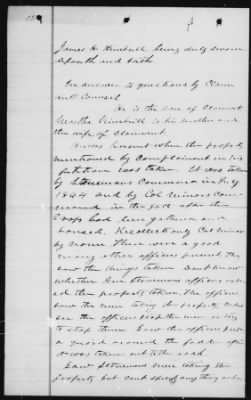 James H. Kimball being duly sworn
deposeth and saith
In answer to questions by Claim
ants Counsel
He is the son of Claimant
Martha Kimball is his mother and
the wife of Claimant
He was present when the property
mentioned by Complainant in his
petition was taken. It was taken
by Stonemans Command in July
1864 and by Col Minors Com
mand in the fall after the
Crops had been gathered and
housed. Recollects only Col Minor
by name There were a good
many other officers present They
saw the things taken Dont know
whether Gen Stonemans officers order
ed the property taken The officers
saw the men taking the property
see the officers stop the men or try
to stop them Saw the officers put
a guard around the fodder after
it was taken out to the road.
Saw Stonemans men taking the
property but cant specify anything